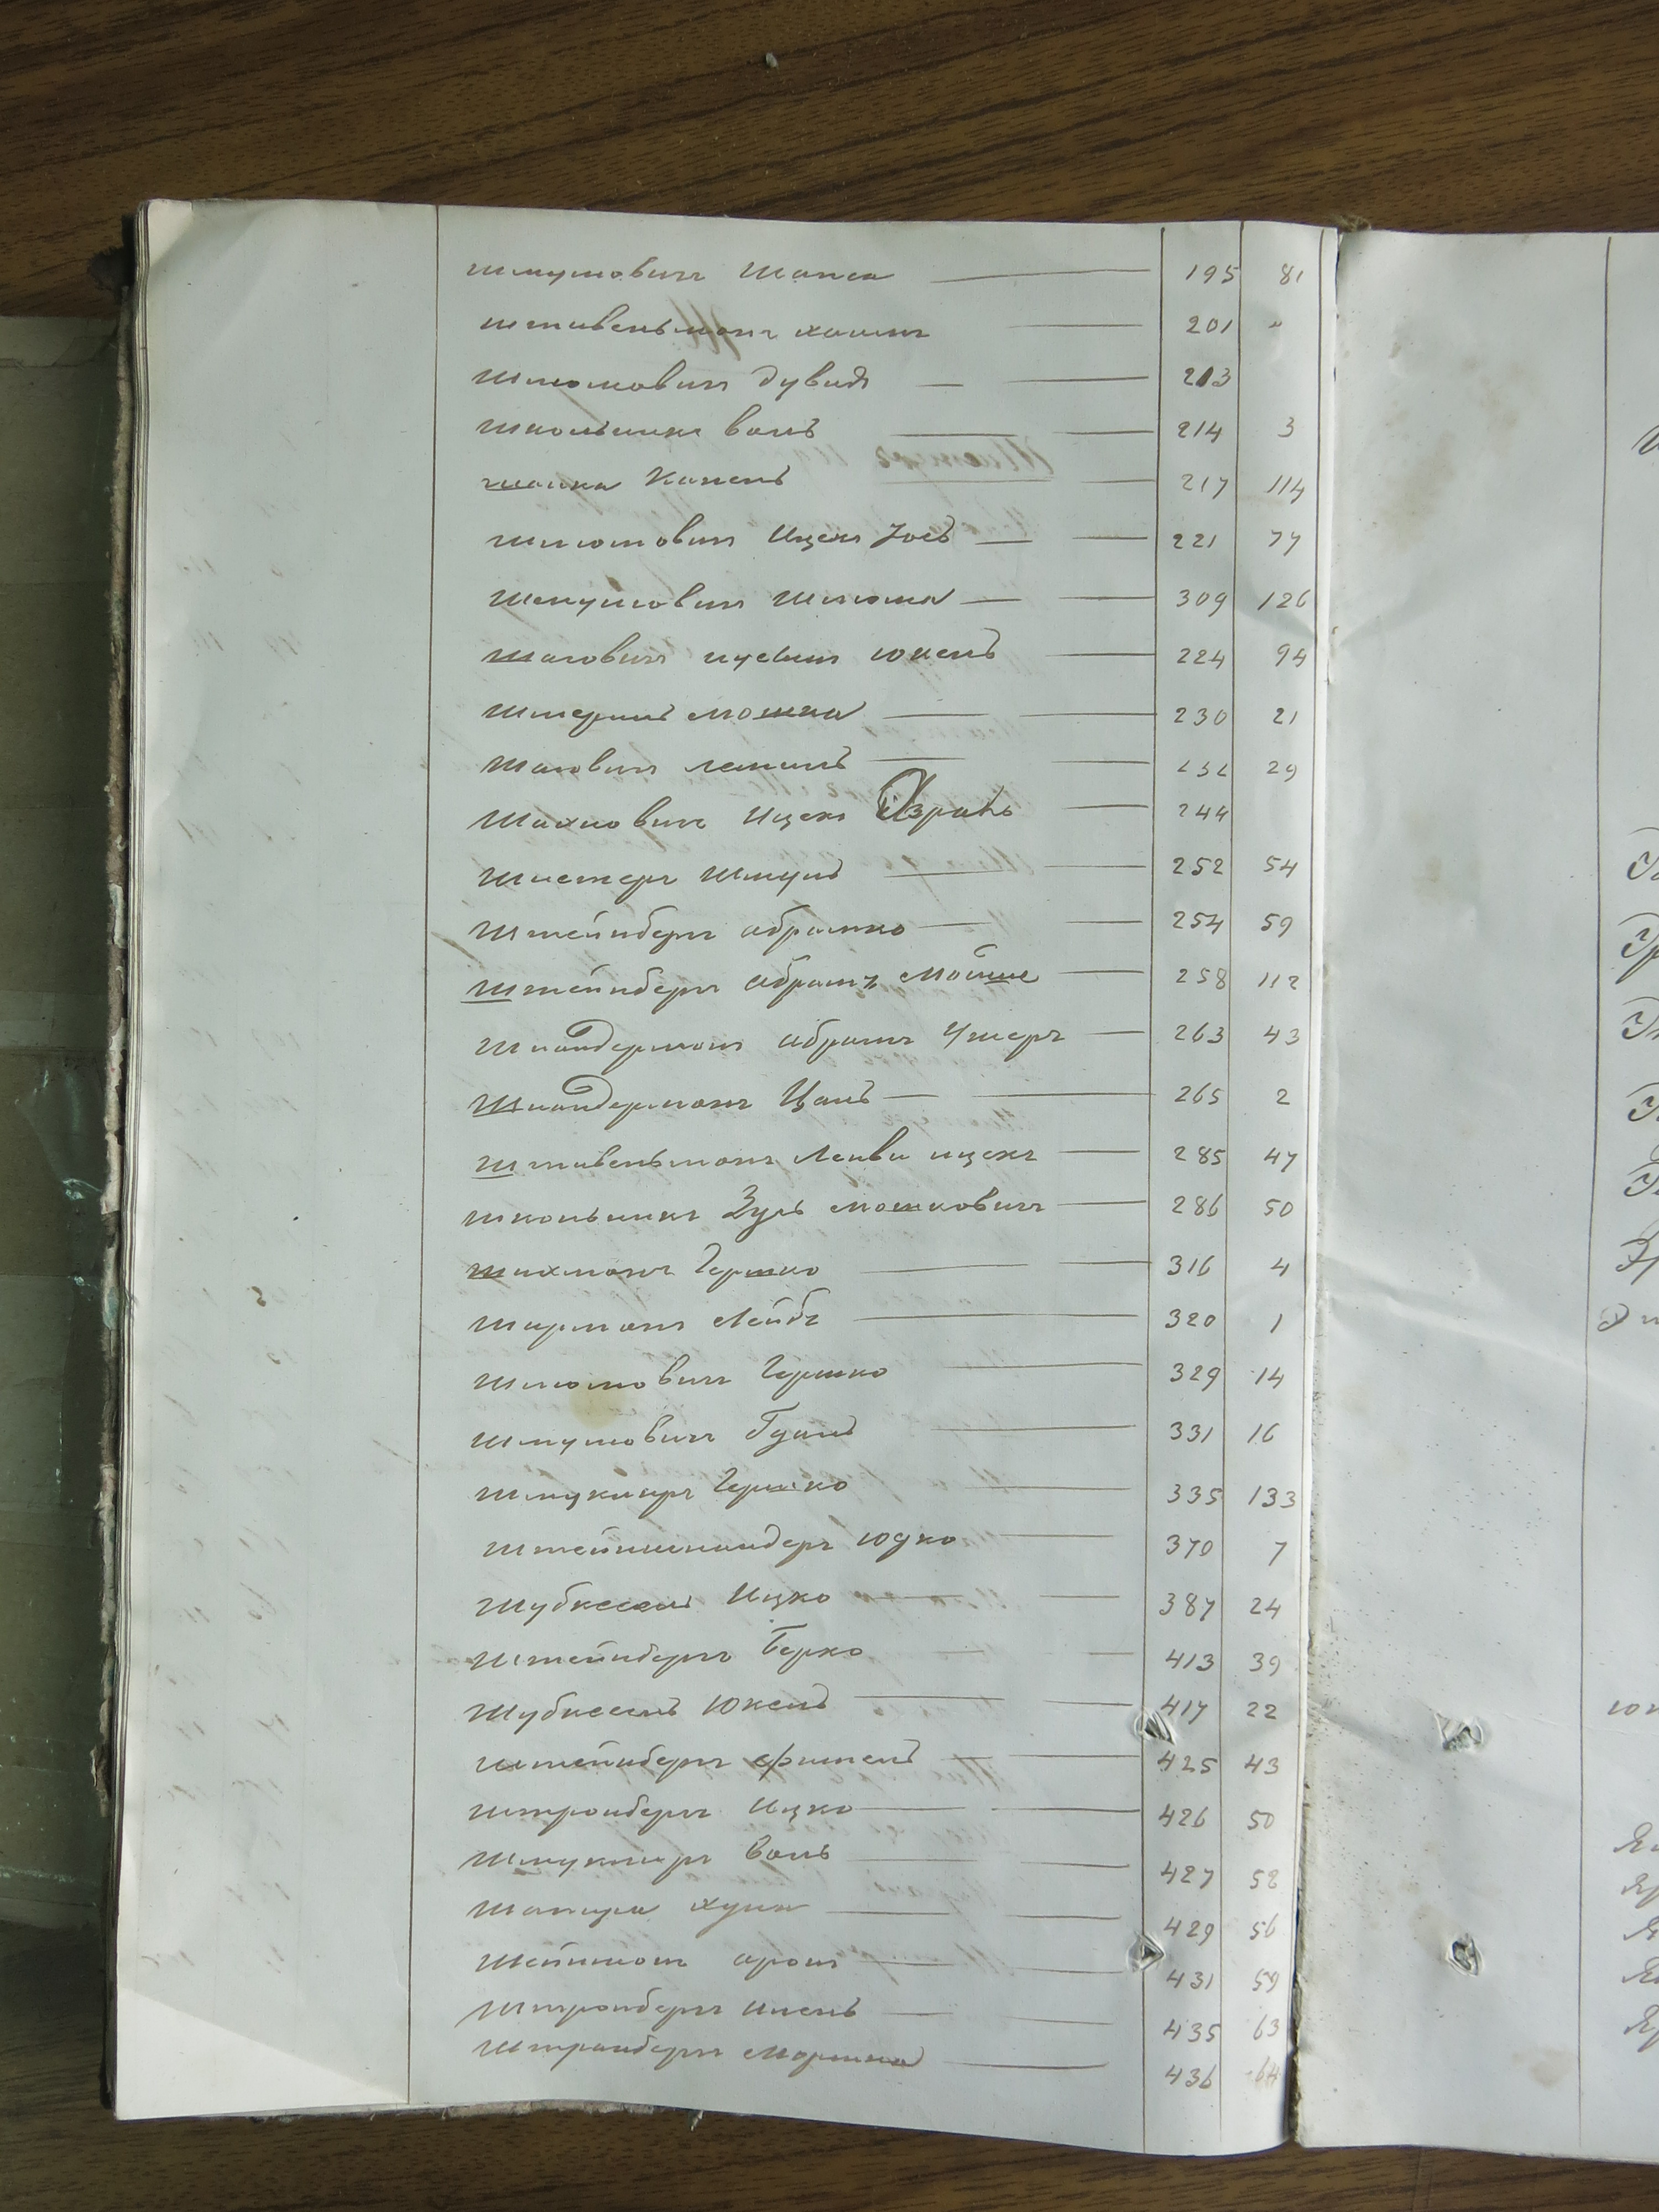 Шмулювичъ Шапса 195 81
Штивельманъ Хаимъ 201 "
Шлiомовичъ Дувидъ 213
ШкольникъВоль 214 3
Шойна Копель 217 114
Шлюмовичъ Ицекъ Іось 221 77
Шмулювичъ Шлiома 309 126
Юкель 224 94
Мошка 230 21
29
Шахновичъ Ицекъ Азриль 244
Шустеръ Шмуль 252 54
Штейнбергъ Абрамко 254 59
Штейнбергъ Абрамъ Мойше 258 112
Шнайдерманъ Абрамъ Ушеръ 263 43
Шнайдерманъ Цаль 265 2
Штивельманъ Лейви Ицекъ 285 47
Школьникъ Зуль Мошковичъ 286 50
Шихманъ Гершко 316 4
Шарманъ Лейбъ 320 1
Шлiомовичъ Гершко 329 14
Шмулювичъ 331 16
Шмуклиръ Гершко 335 133
Штейншнайдеръ Юдко 370 7
Шубкесель Ицко 387 24
Штейнбергъ Берко 413 39
Шубкесель Юкель 417 22
Штейнбергъ Фишель 425 43
Штромбергъ Ицко 426 50
Шмуклиръ Воль 427 52
Шапира Хуна 429 56
Аронъ 431 59
Штромбергъ 435 63
Штромбергъ 436 64